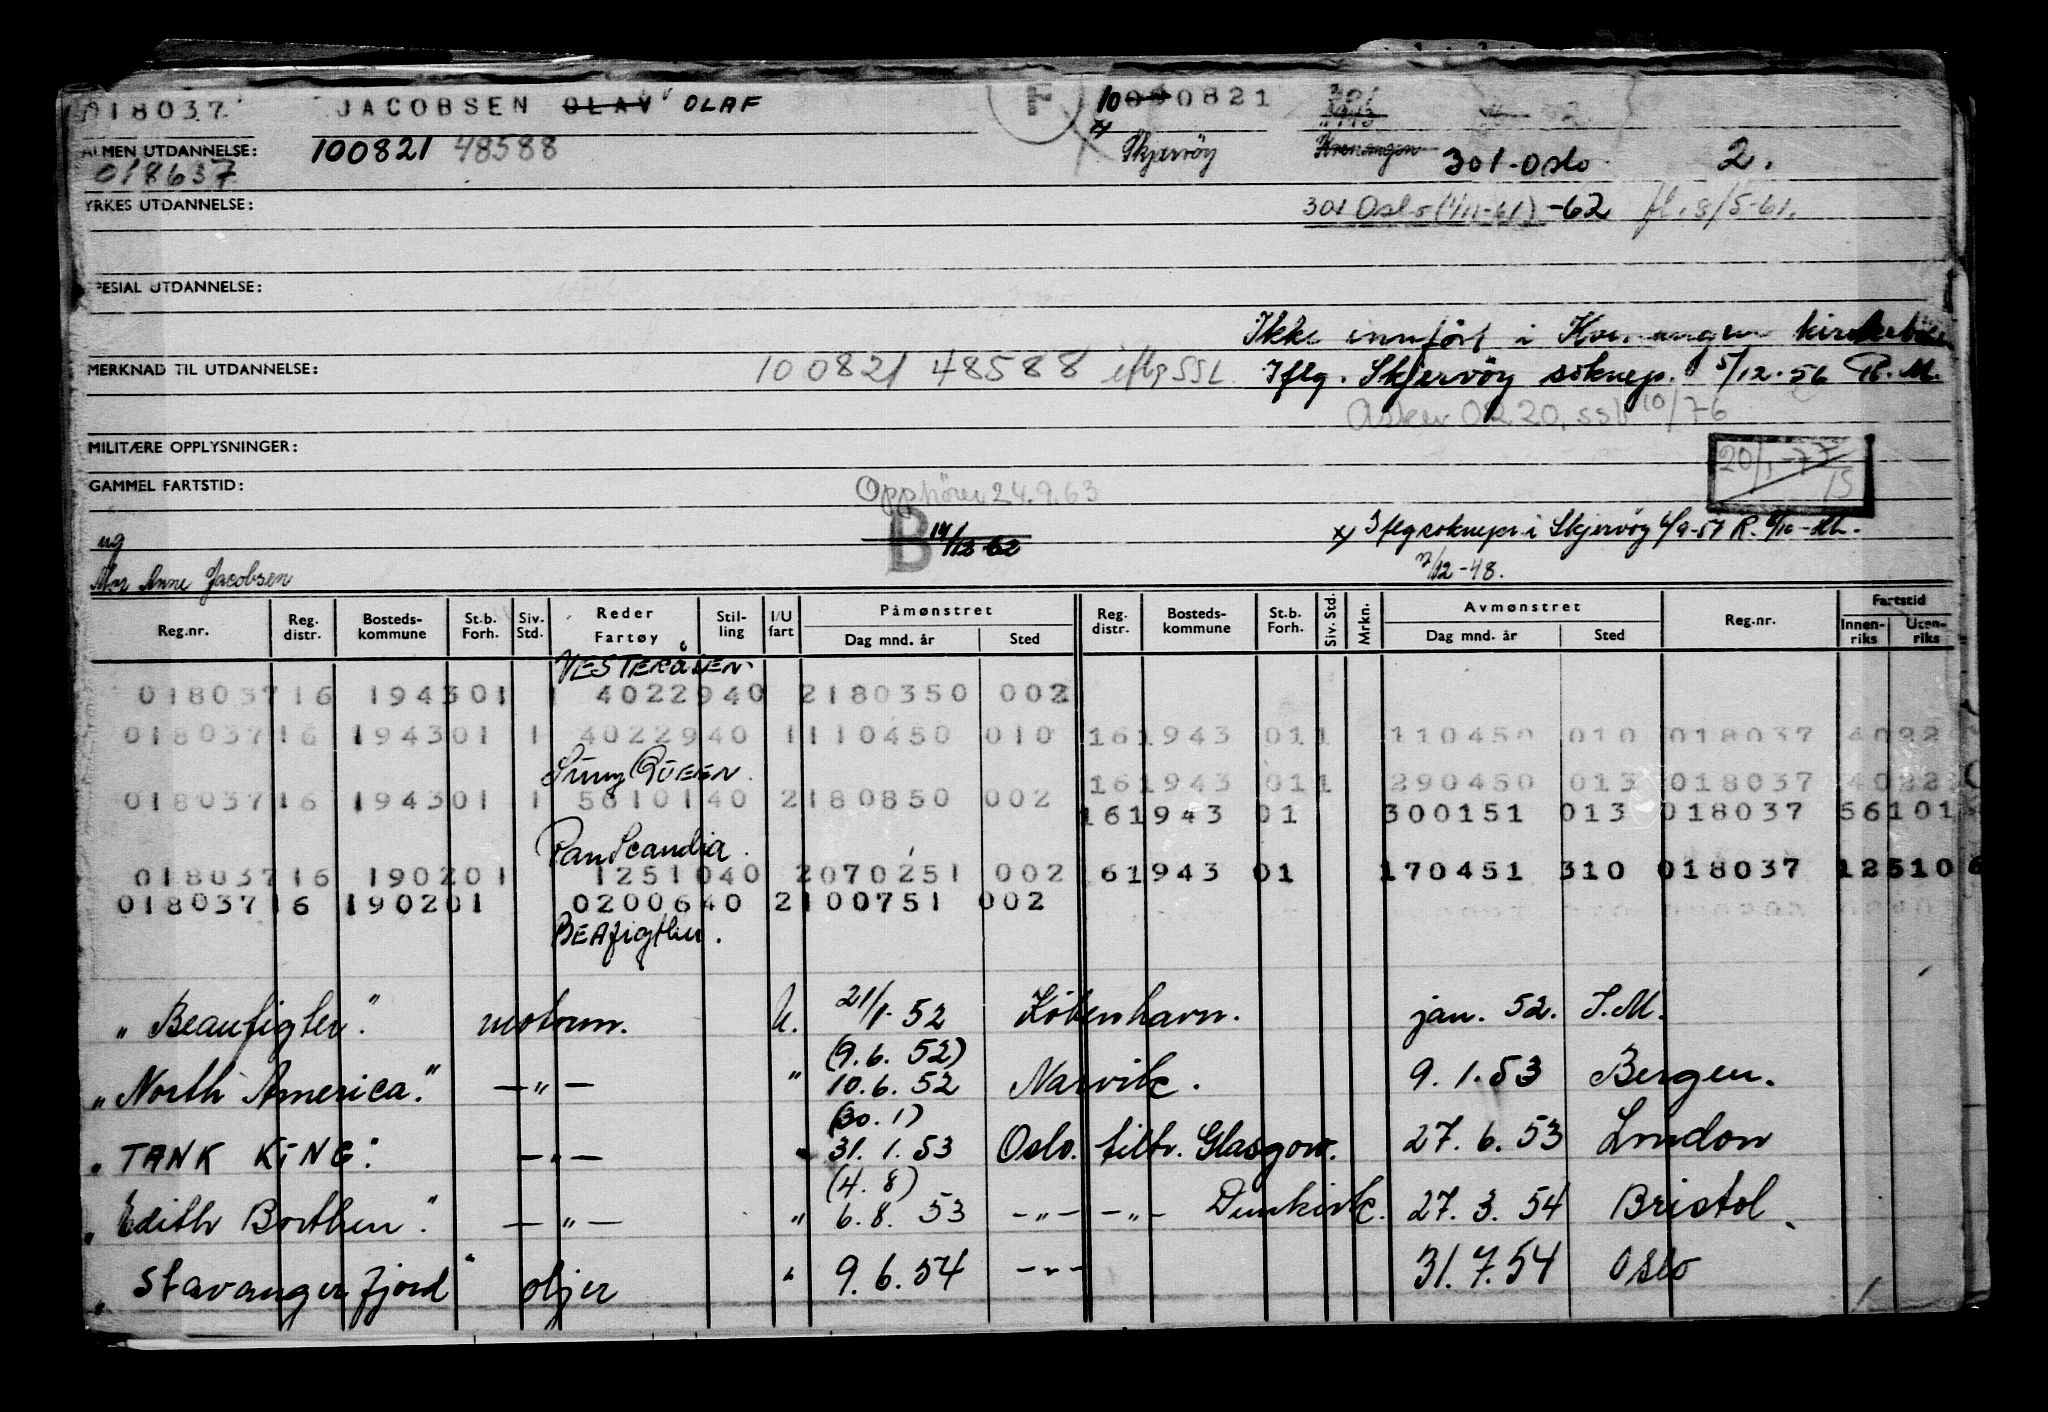 018037 JACOBSEN OLAV OLAF 10 080821 301
1943
ALMEN UTDANNELSE: 100821 48588 Skjervöy Kvenangen 301-Oslo 2.
018637
YRKES UTDANNELSE: 301 Oslo (1/11-61) -62 fl. 8/5-61.
SPESIAL UTDANNELSE:
Ikke innfört i Kvenangen
MERKNAD TIL UTDANNELSE: 100821 48588 iflg SSL Iflg. Skjervöy soknepr. 5/12-56 R. M.
Asker 0220, ssb 10/76
MILITÆRE OPPLYSNINGER: 20/1-77
15
GAMMEL FARTSTID: Opphörer 24.9.63
B 14/12 62 x) Iflg soknepr i Skjervöy
ug 7/12-48.
Mor Anne Jacobsen
Reg.nr. Reg. distr. Bosteds-kommune St.b. Forh. Siv. Std. Reder Fartøy Stil-ling I/U fart Påmønstret Dag mnd. år Sted Reg. distr. Bosteds-kommune St.b. Forh. Siv. Std. Mrkn. Avmønstret Dag mnd. år Sted Reg.nr. Fartstid Innen-riks Uten-riks
VESTERÅLEN
018037 16 1943 01 1 4022940 2180350 002
018037 16 1943 01 1 4022940 1110450 010 16 1943 011 110450 010 018037 4022
Sunny QUEEN 16 1943 011 290450 013 018037 4022
018037 16 1943 01 1 5610140 2180850 002
16 1943 01 300151 013 018037 56101
Pan Scandia.
018037 16 1902 01 1251040 2070251 002 6 1943 01 170451 310 018037 12510 6
018037 16 1902 01 0200640 2100751 002
BEAfigther.
"Beaufigter". motorm. U. 21/1-52 København. jan. 52. S.M.
(9.6.52)
"North America." —"— " 10.6.52 Narvik. 9.1.53 Bergen.
(30.1)
"TANK KING". —"— " 31.1.53 Oslo. tiltr. Glasgow. 27.6.53 London
(4.8)
"Edith Borthen". —"— " 6.8.53 —"— —"— Dunkirk. 27.3.54 Bristol
"Stavangerfjord" oljer " 9.6.54 —"— 31.7.54 Oslo